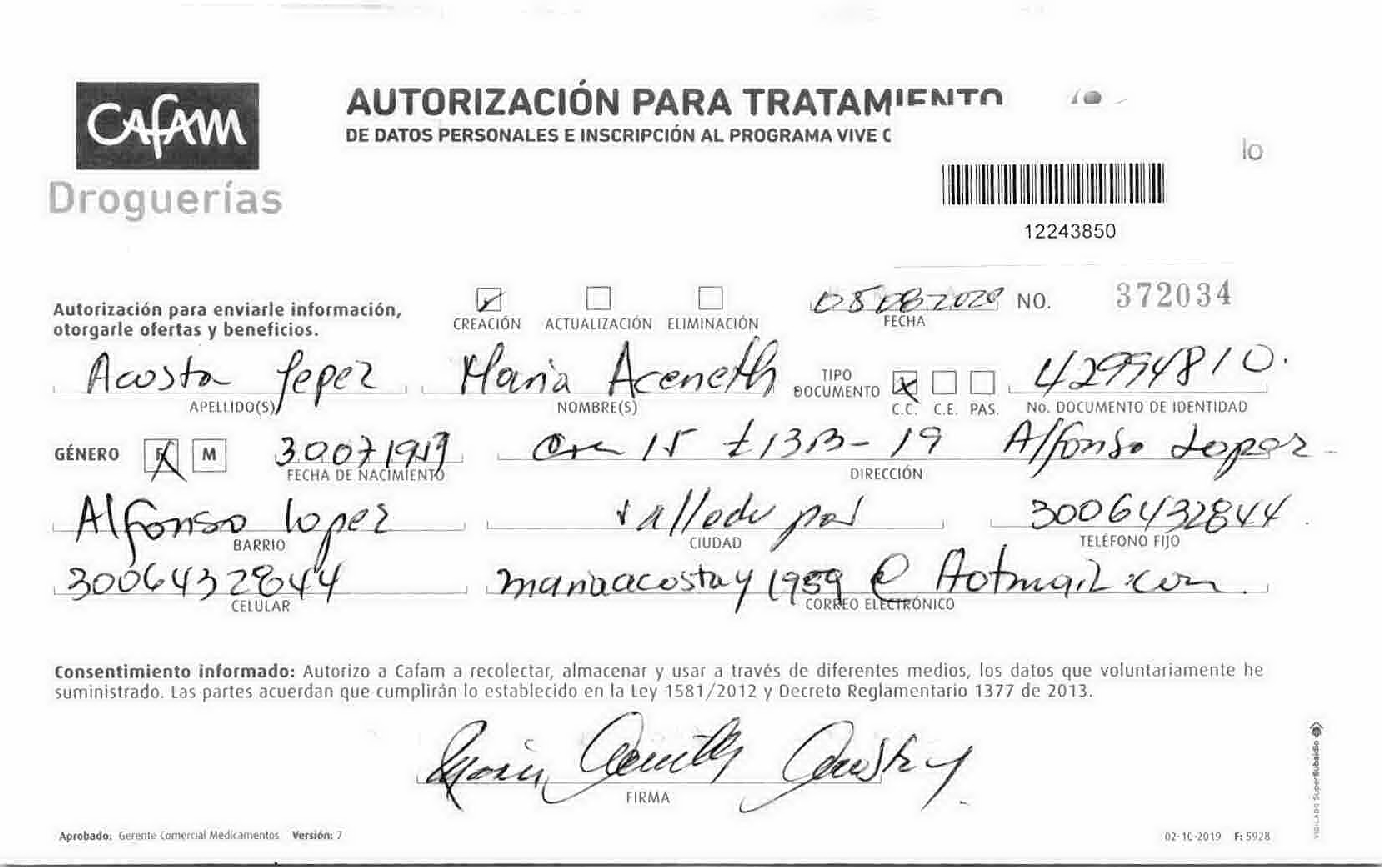 CAFAM
Droguerías
AUTORIZACIÓN PARA TRATAMIENTO
DE DATOS PERSONALES E INSCRIPCIÓN AL PROGRAMA VIVE C
lo
12243850
Autorización para enviarle información,
otorgarle ofertas y beneficios.
CREACIÓN ACTUALIZACIÓN ELIMINACIÓN
05 08 2020 NO. 372034
FECHA
Acosta Yepez Maria Aceneth TIPO DOCUMENTO 42994810.
APELLIDO(S) NOMBRE(S) C.C. C.E. PAS. No. DOCUMENTO DE IDENTIDAD
GÉNERO F M 30071959 Cra 15 #13B-19 Alfonso Lopez
FECHA DE NACIMIENTO DIRECCIÓN
Alfonso lopez Valledupar 3006432844
BARRIO CIUDAD TELÉFONO FIJO
3006432844 mariaacostay1959@Hotmail.com
CELULAR CORREO ELECTRÓNICO
Consentimiento informado: Autorizo a Cafam a recolectar, almacenar y usar a través de diferentes medios, los datos que voluntariamente he
suministrado. Las partes acuerdan que cumplirán lo establecido en la Ley 1581/2012 y Decreto Reglamentario 1377 de 2013.
FIRMA
Aprobado: Gerente Comercial Medicamentos Versión: 7
02-10-2019 F: 5928
VIGILADO SuperSubsidio